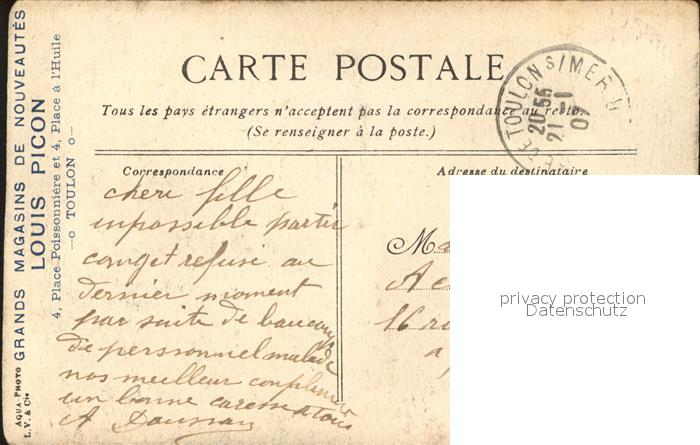 GRANDS MAGASINS DE NOUVEAUTÉS
LOUIS PICON
4, Place Poissonnière et 4, Place à l'Huile
—o TOULON o—
AQUA-PHOTO
L. V. & Cie
CARTE POSTALE
Tous les pays étrangers n'acceptent pas la correspondance au recto.
(Se renseigner à la poste.)
TOULON S/MER
20*55
21 -1
07
Correspondance
Adresse du destinataire
chere fille
impossible partir
conget refusé au
dernier moment
par suite de baucoup
de personnel malade
nos meilleur
un bonne caresse a tous
A
M
A
16
a
privacy protection
Datenschutz